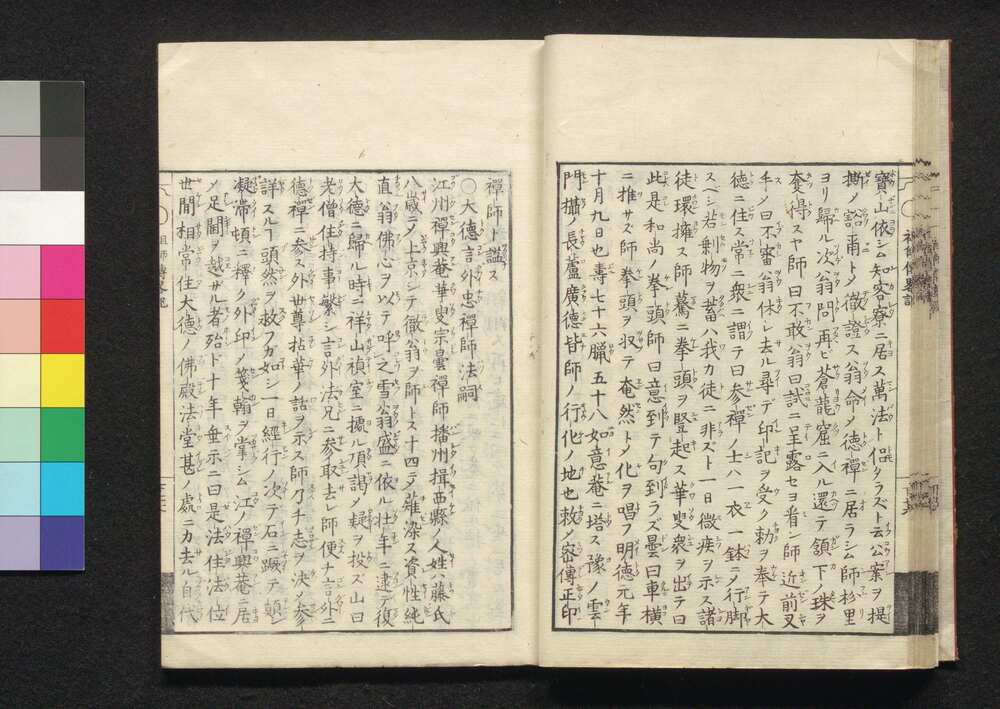 寶山依シム知客寮ニ居ス萬法ト侶タラズト云公案ヲ提
撕ノ豁爾トメ徹證ス翁命メ徳禪ニ居ラシム師杉里
ヨリ歸ル次翁問再ビ蒼龍窟ニ入ル還テ頷下ノ珠ヲ
奪得スヤ師曰不敢翁曰試ニ呈露セヨ看ン師近前叉
手ノ曰不審翁休シ去ル尋デ印記ヲ受ク勑ヲ奉テ大
徳ニ住ス常ニ衆ニ謂テ曰參禪ノ士ハ一衣一鉢ニノ行脚
スベシ若剰物ヲ蓄ハ我カ徒ニ非スト一日微疾ヲ示ス諸
徒環擁ス師驀ニ拳頭ヲ竪起ス華叟衆ヲ出テ曰
此是和尚ノ拳頭師曰意到テ句到ラズ曇曰車横
ニ推サズ師拳頭ヲ収テ奄然トメ化ヲ唱フ明徳元年
十月九日也壽七十六臘五十八如意菴ニ塔ス豫ノ雲
門攝ノ長蘆廣徳皆師ノ行化ノ地也敕メ密傳正印
禪師ト謚ス
○大徳言外忠禪師法嗣
江州禪興菴華叟宗曇禪師播州揖西縣ノ人姓ハ藤氏
八歳ニメ上京シテ徹翁ヲ師トス十四テ薙染ス資性純
直翁佛心ヲ以テ呼之雪翁盛ニ依ル壮年ニ逮デ復
大徳ニ歸ル時ニ祥山禎室ニ據ル頂謁メ疑ヲ投ズ山曰
老僧住持事繁シ言外法兄ニ參取シ去レ師便チ言外ニ
徳禪ニ參ス外世尊拈華ノ話ヲ示ス師乃チ志ヲ決メ參
詳スルヿ頭然ヲ救フガ如シ一日經行ノ次テ石ニ蹶テ頭
凝滯頓ニ釋ク外印ノ箋翰ヲ掌シム江ノ禪興菴ニ居
ノ足閫ヲ越ザル者殆ト十年垂示ニ曰是法住法位
世間相常住大徳ノ佛殿法堂甚ノ處ニカ去ル自代